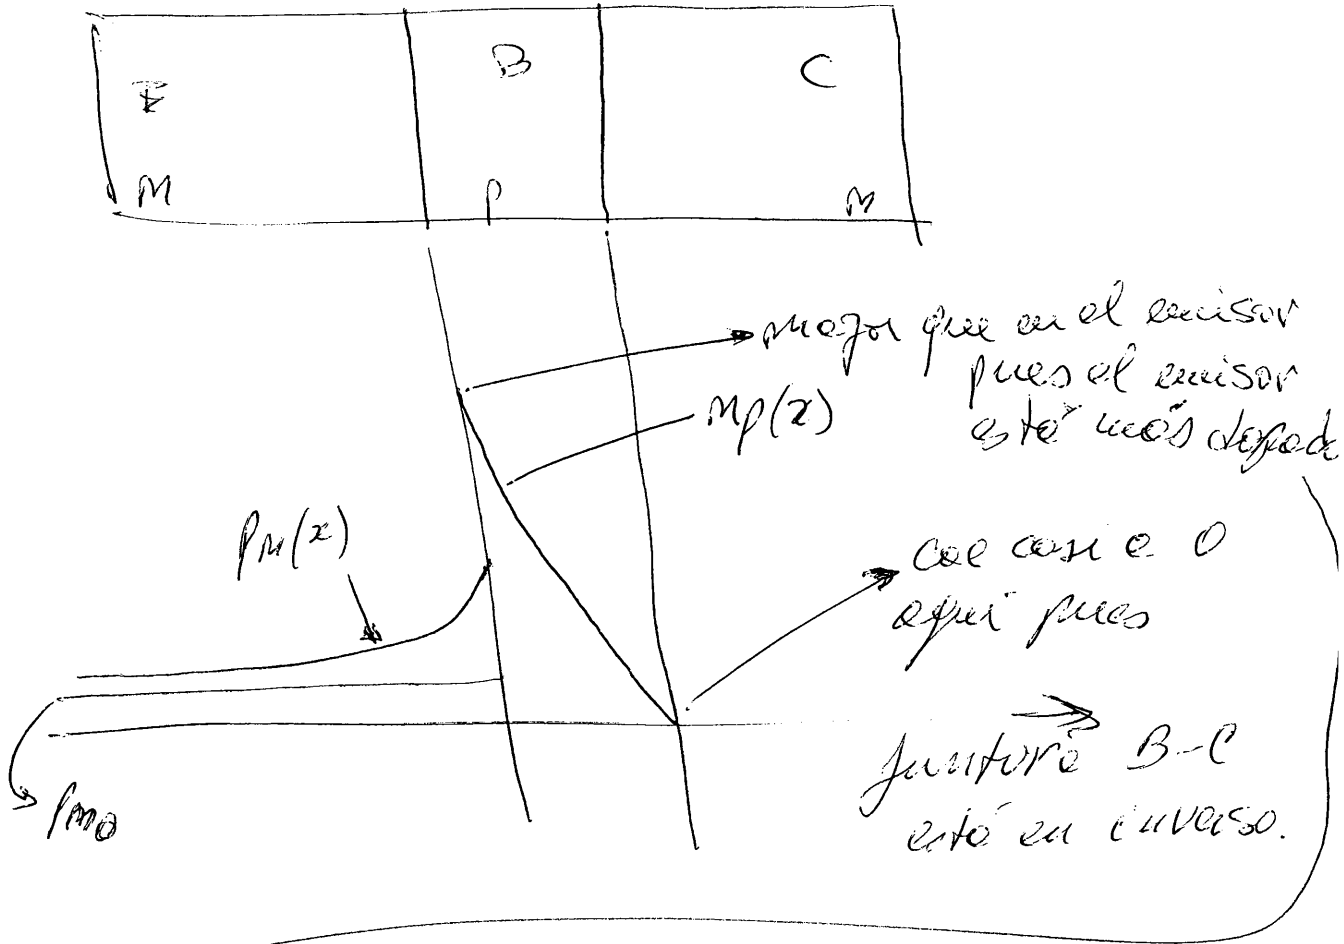 E
B
C
n
p
n
mayor que en el emisor
pues el emisor
está más dopad
np(x)
pn(x)
cae casi a 0
aquí pues
juntura B-C
está en inverso.
pno